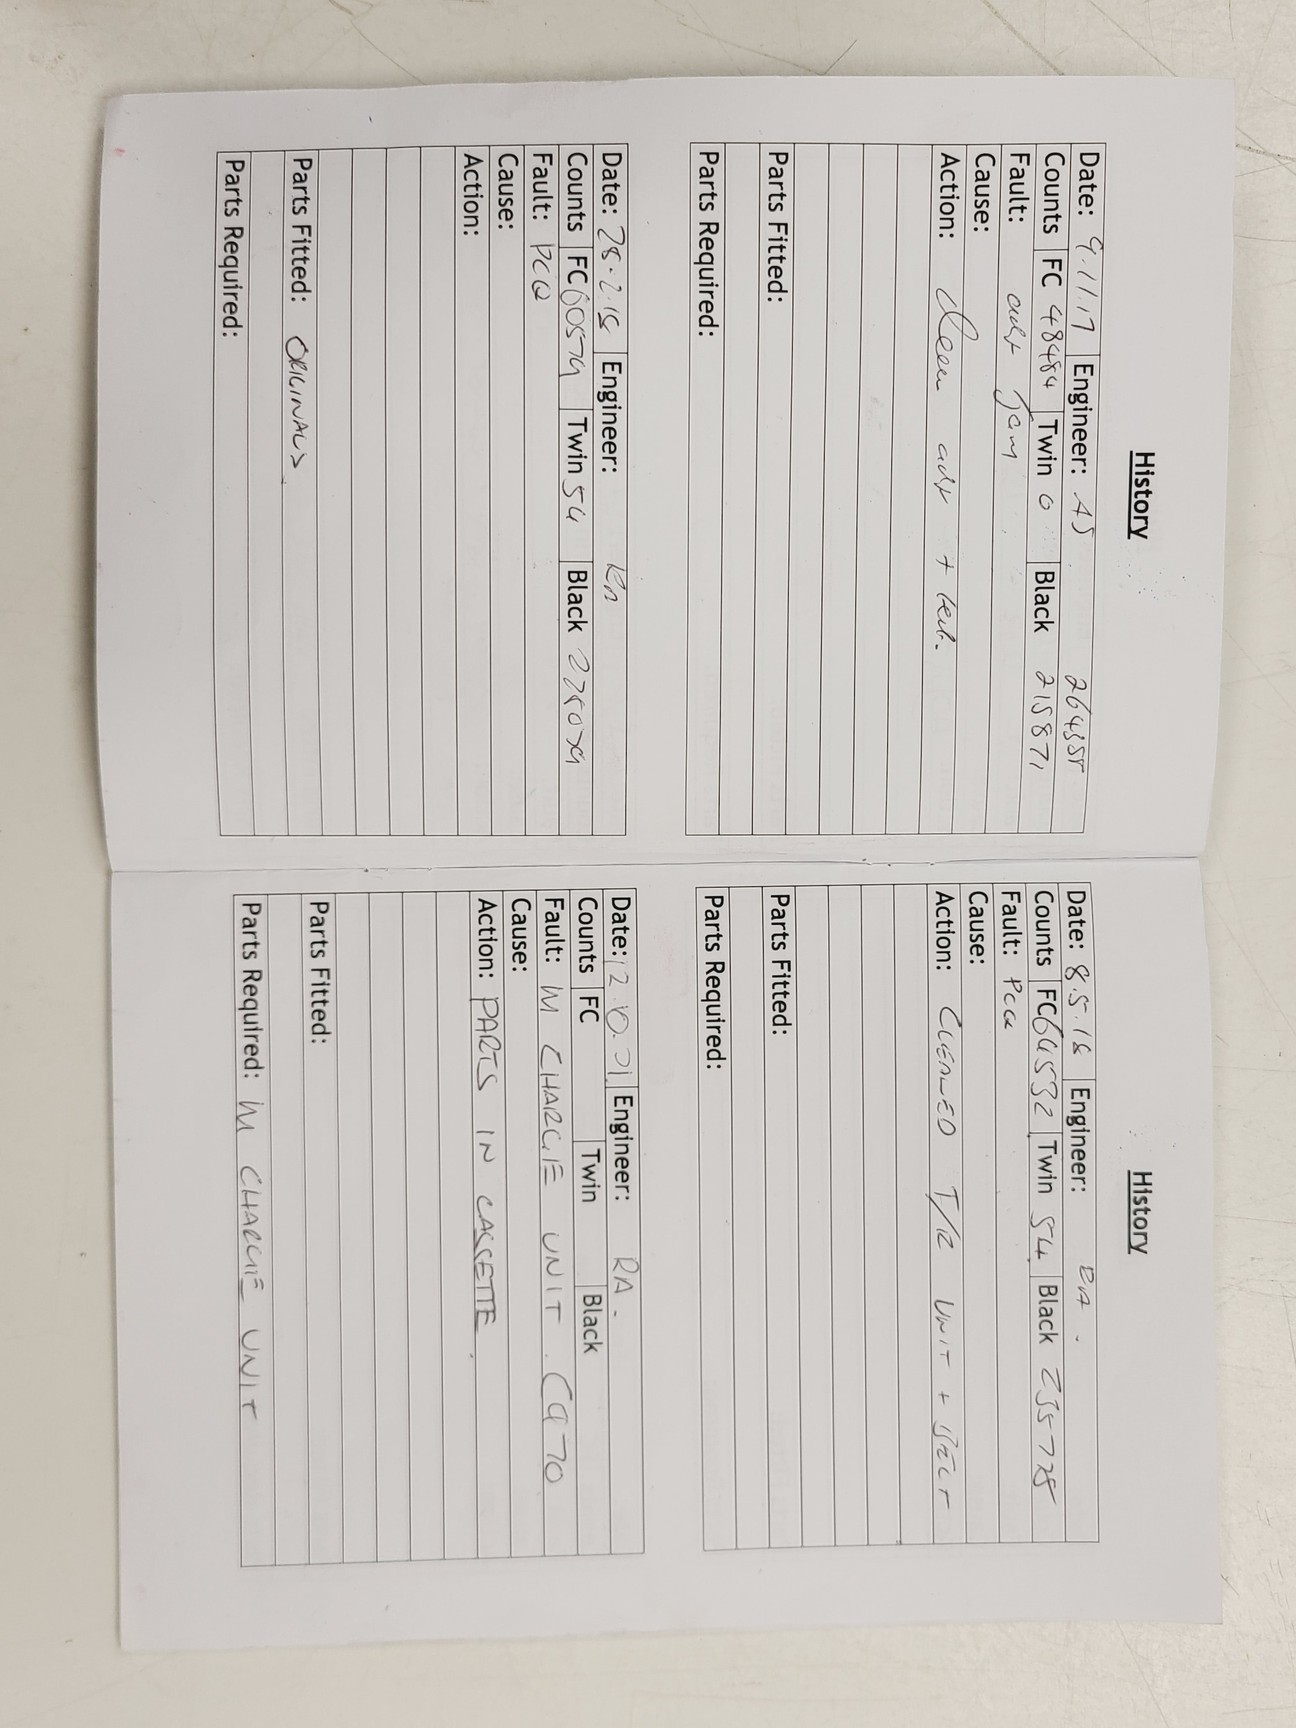 History
Date: 9.11.17 Engineer: AS
Counts FC 48484 Twin 0 Black 215871
Fault: adf Jam
Cause:
Action: Clean adf + test.
Parts Fitted:
Parts Required:
Date: 28.2.18 Engineer:
Counts FC 60579 Twin 54 Black
Fault: PCQ
Cause:
Action:
Parts Fitted: ORIGINALS
Parts Required:
History
Date: 8.5.18 Engineer: RA.
Counts FC 64532 Twin 54 Black 235728
Fault: PCQ
Cause:
Action: CLEANED T/R UNIT + BELT
Parts Fitted:
Parts Required:
Date: 12.10.21. Engineer: RA.
Counts FC Twin Black
Fault: M CHARGE UNIT. C970
Cause:
Action: PARTS IN CASSETTE.
Parts Fitted:
Parts Required: M CHARGE UNIT